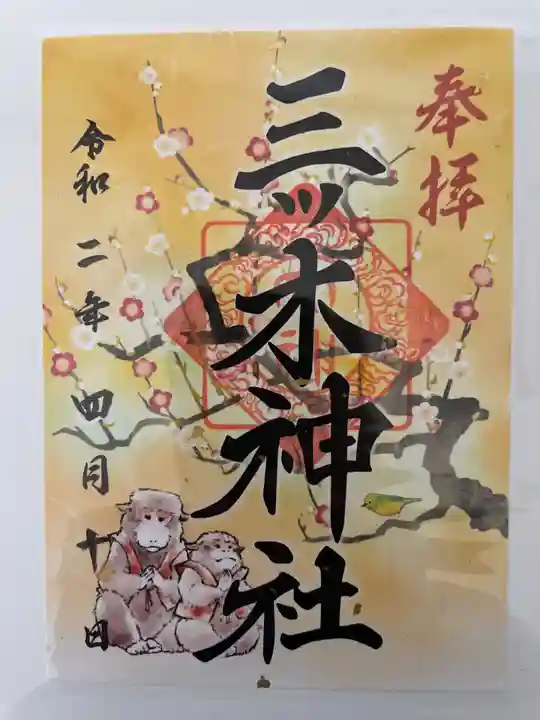 奉拝
三ッ木神社
令和二年四月十日